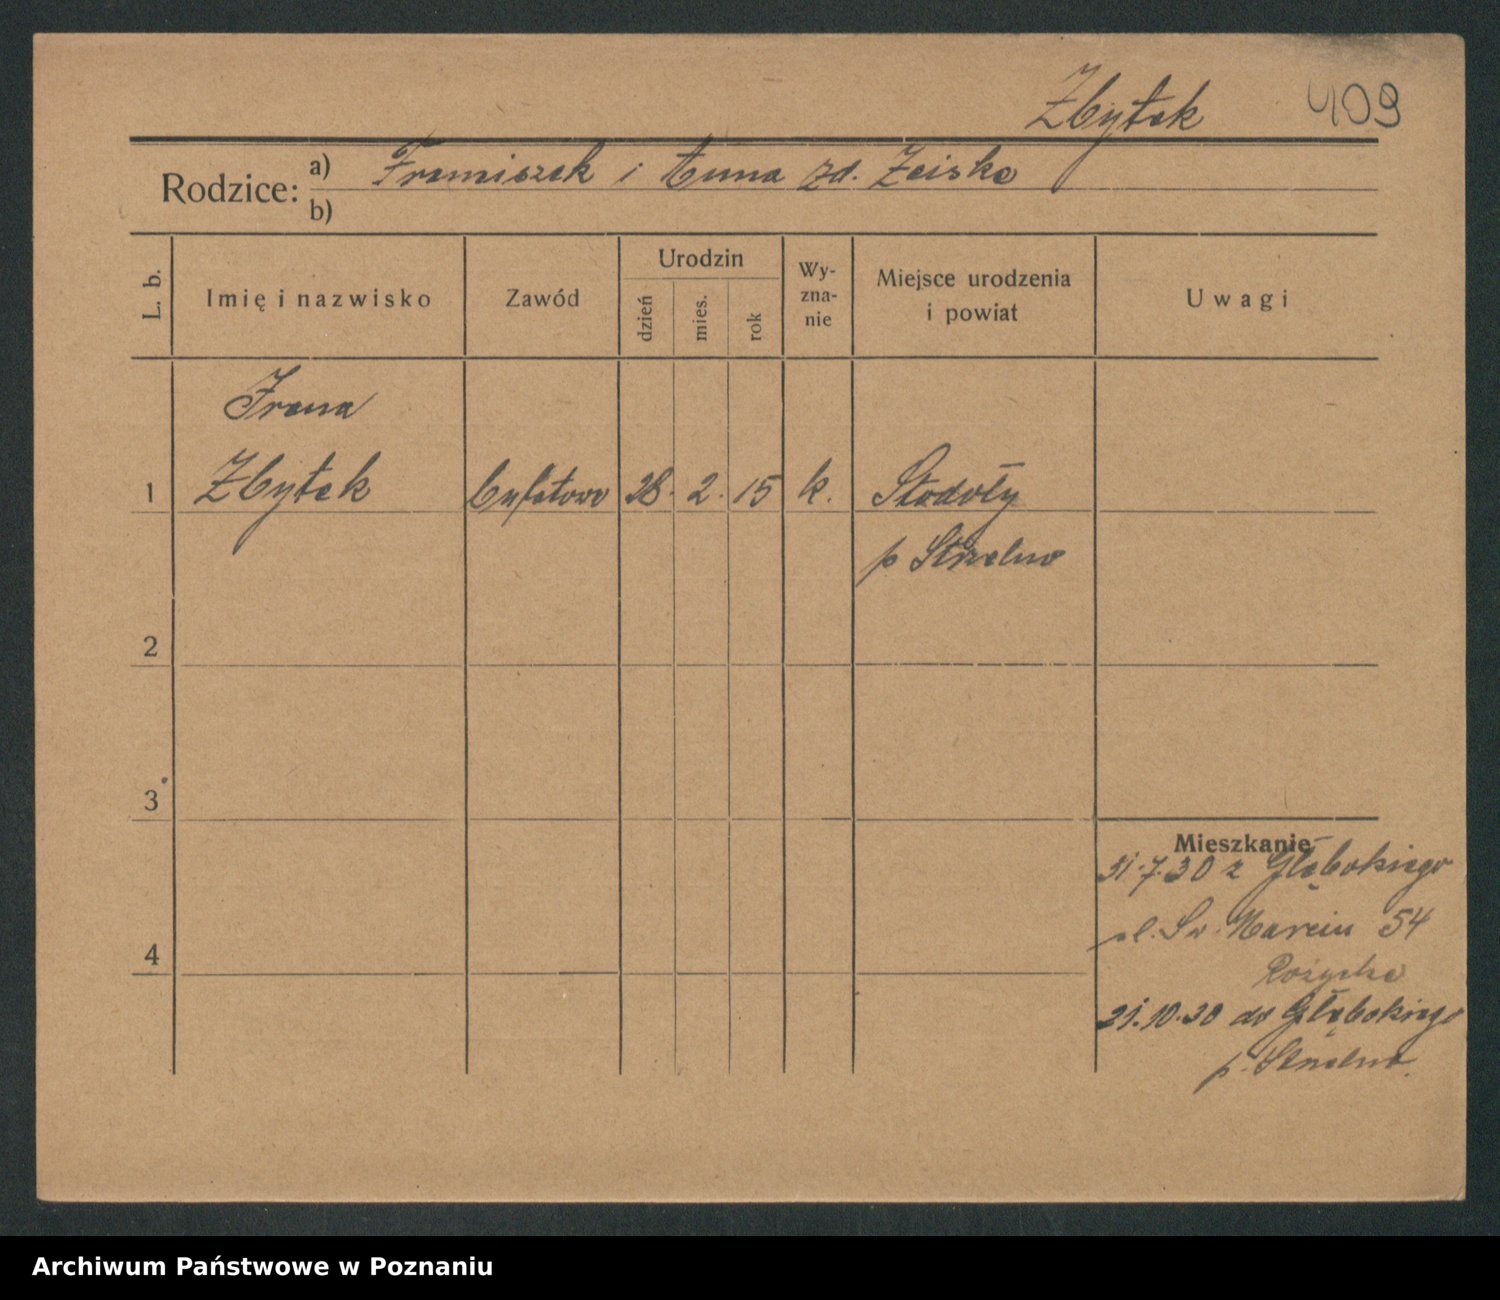 Zbytek 409
Rodzice: a) Franciszek i Anna zd. Zeiske
b)
L. b. Imię i nazwisko Zawód Urodzin dzień mies. rok Wyznanie Miejsce urodzenia i powiat Uwagi
Irena
1 Zbytek bufetowa 28. 2. 15 k. Stodoły
p Strzelno
2
3
Mieszkanie
31.7.30 z Głębokiego
pl. Św. Marcin 54
4
21.10.30 do Głębokiego
p. Strzelno.
Archiwum Państwowe w Poznaniu